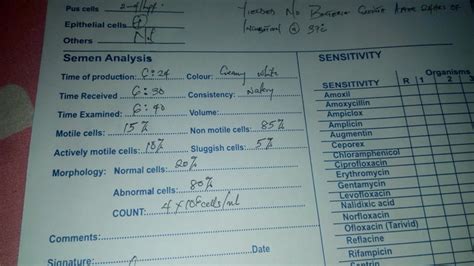 Pus cells
Yielded No Bacterial Growth After 48hrs of
Epithelial cells
Incubation @ 37°C
Others Nil
Semen Analysis
SENSITIVITY
Time of production: 6:24 Colour: Creamy White
Organisms
Time Received 6:30 Consistency: Watery
SENSITIVITY R 1 2 3
Time Examined: 6:40 Volume:
Amoxil
Amoxycillin
Motile cells: 15% Non motile cells: 85%
Ampiclox
Amplicin
Actively motile cells: 10% Sluggish cells: 5%
Augmentin
Ceporex
Morphology: Normal cells: 20%
Chloramphenicol
Ciprofloxacin
Abnormal cells: 80%
Erythromycin
Gentamycin
COUNT: 4 x 10⁶ cells/ml
Levofloxacin
Nalidixic acid
Comments:
Norfloxacin
Ofloxacin (Tarivid)
Reflacine
Signature: Date
Rifampicin
Septrin